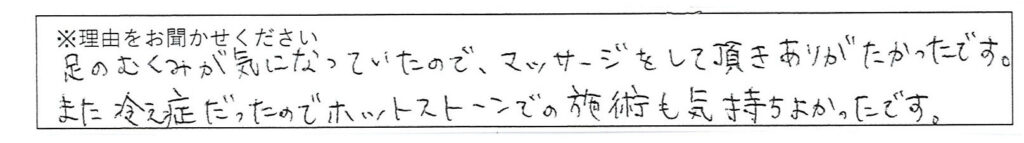 ※理由をお聞かせください
足のむくみが気になっていたので、マッサージをして頂きありがたかったです。
また冷え症だったのでホットストーンでの施術も気持ちよかったです。